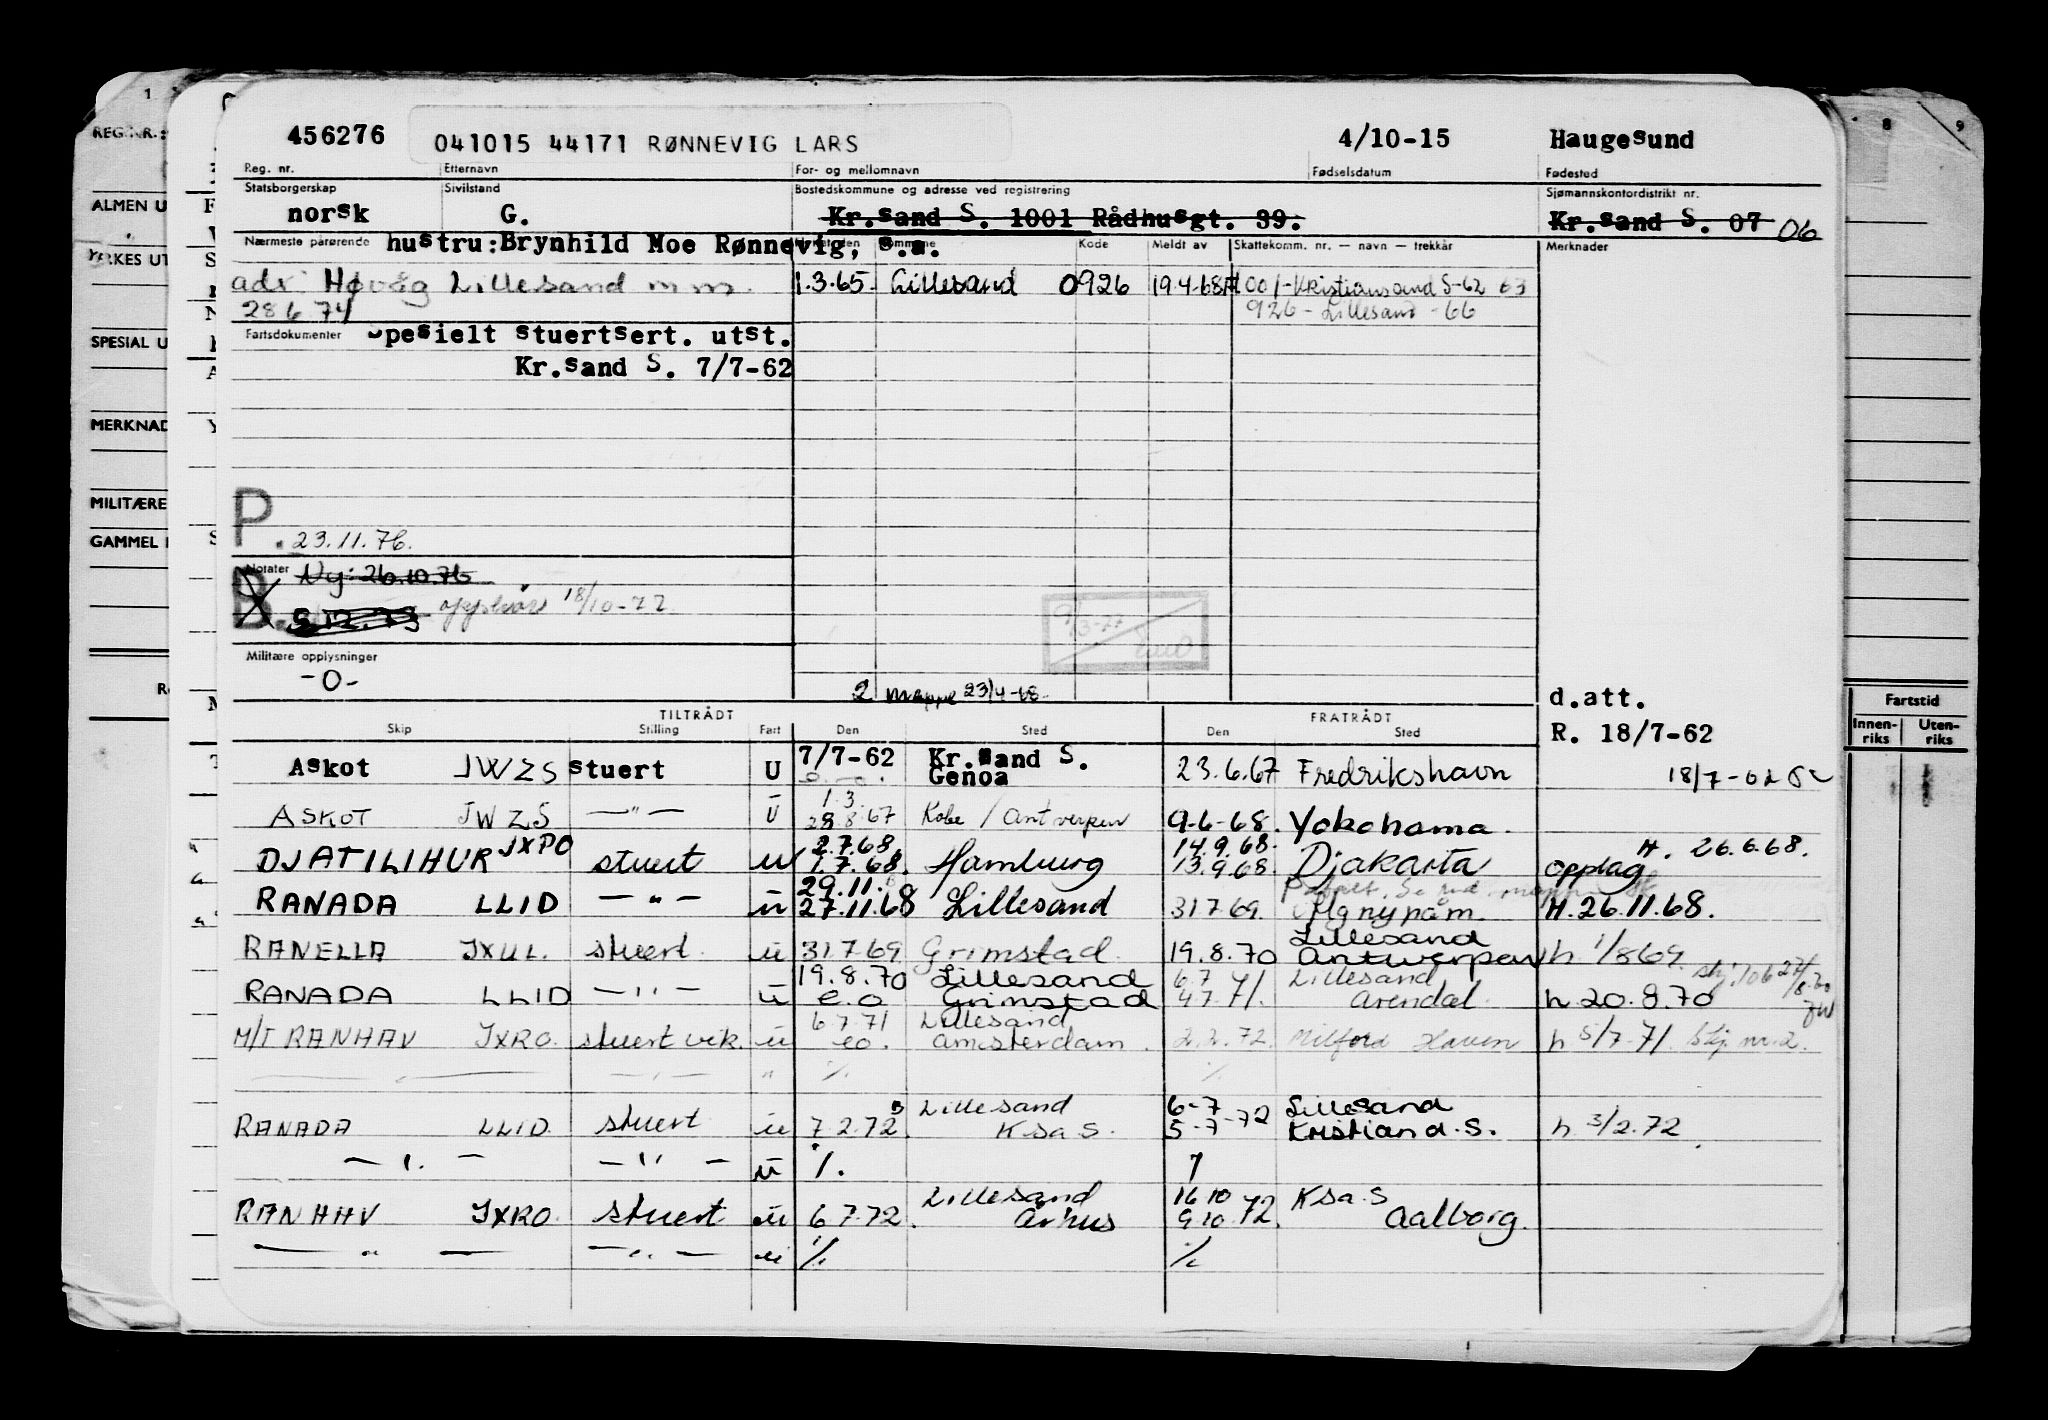 456276 041015 44171 RØNNEVIG LARS 4/10-15 Haugesund
Reg. nr. Etternavn For- og mellomnavn Fødselsdatum Fødested
Statsborgerskap Sivilstand Bostedskommune og adresse ved registrering Sjømannskontordistrikt nr.
norsk G. Kr.sand S. 1001 Rådhusgt. 39. Kr.sand S. 07 06
Nærmeste pårørende hustru: Brynhild Moe Rønnevig, s.a. Kode Meldt av Skattekomm. nr. — navn — trekkår Merknader
adr. Høvåg Lillesand m m. 1.3.65. Lillesand 0926 19.4.68 1001-Kristiansand S-62 63
28 6 74 926 - Lillesand - 66
Fartsdokumenter Spesielt stuertsert. utst.
Kr.sand S. 7/7-62
P. 23.11.76.
Notater Ny: 26.10.76
B. 18/10-77
9/3-77
Militære opplysninger
-0-
2 mappe 23/4-68. d.att.
TILTRÅDT FRATRÅDT
Skip Stilling Fart Den Sted Den Sted R. 18/7-62
Askot JWZS stuert U 7/7-62 Kr.sand S. Genoa 23.6.67 Fredrikshavn 18/7-62
ASKOT JWZS —"— U 1.3. 28.8.67 Kobe / Antwerpen 9-6-68. Yokohama.
DJATILIHUR JXPO stuert u 2.7.68 1.7.68. Hamburg 14.9.68. 13.9.68 Djakarta opplag H. 26.6.68.
RANADA LLID —"— u 29.11. 27.11.68 Lillesand 31 7 69. H. 26.11.68.
RANELLA JXUL. stuert. u 31.7.69 Grimstad 19.8.70 Lillesand Antwerpen h 1/8 69.
RANADA LLID —"— u 19.8.70 e.o Lillesand Grimstad 6.7 4.7.71. Lillesand Arendal. h 20.8.70
M/T RANHAV JXRO. stuert vik. u 6 7.71 eo. Lillesand Amsterdam. 2.2.72. Milford Haven h 5/7-71. Skj. nr. 2.
—"— —"— " %. %
RANADA LLID. stuert u 7.2.72. Lillesand Ksa S. 6-7 5-7-72 Lillesand Kristiand.S. h. 3/2.72
—"— —"— u %.
RANHAV JXRO. stuert u 6 7.72. Lillesand Århus 16 10 9 10.72. Ksa. S Aalborg.
—"— —"— u % %
1
REG.NR.:
ALMEN U
YRKES UT
SPESIAL U
MERKNAD
MILITÆRE
GAMMEL
8 9
Fartstid
Innen-riks Uten-riks